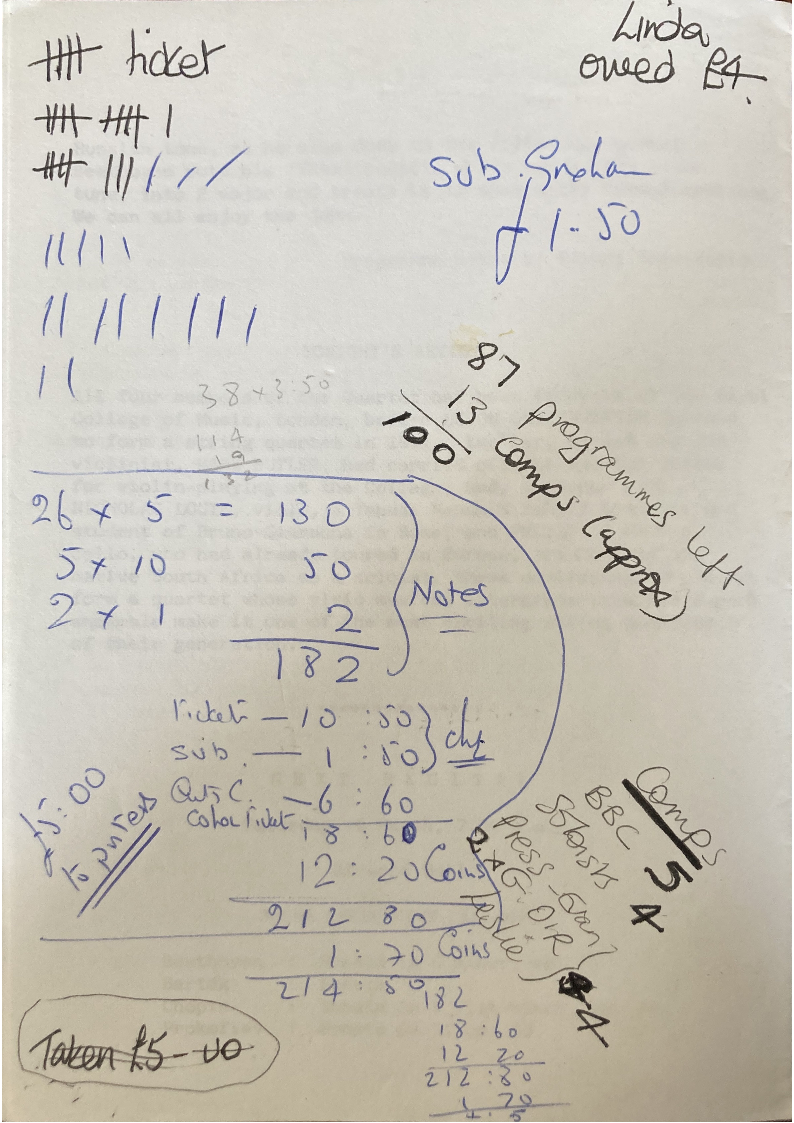 ticket
Linda
owed £4.
Sub. Graham
£1-50
38 x 3:50
114
19
132
87 programmes left
13 Comps (approx)
100
26 x 5 = 130
5 x 10 50
2 x 1 2
182
Notes
Ticket — 10 : 50
Sub. — 1 : 50
chq
C. — 6 : 60
Ticket
18 : 60
12 : 20 Coins
212 80
1 : 70 Coins
214 : 50
£5:00
to
Comps
BBC 5
Soloists 4
Press
4
182
18 : 60
12 20
212 : 80
1 70
Taken £5-00